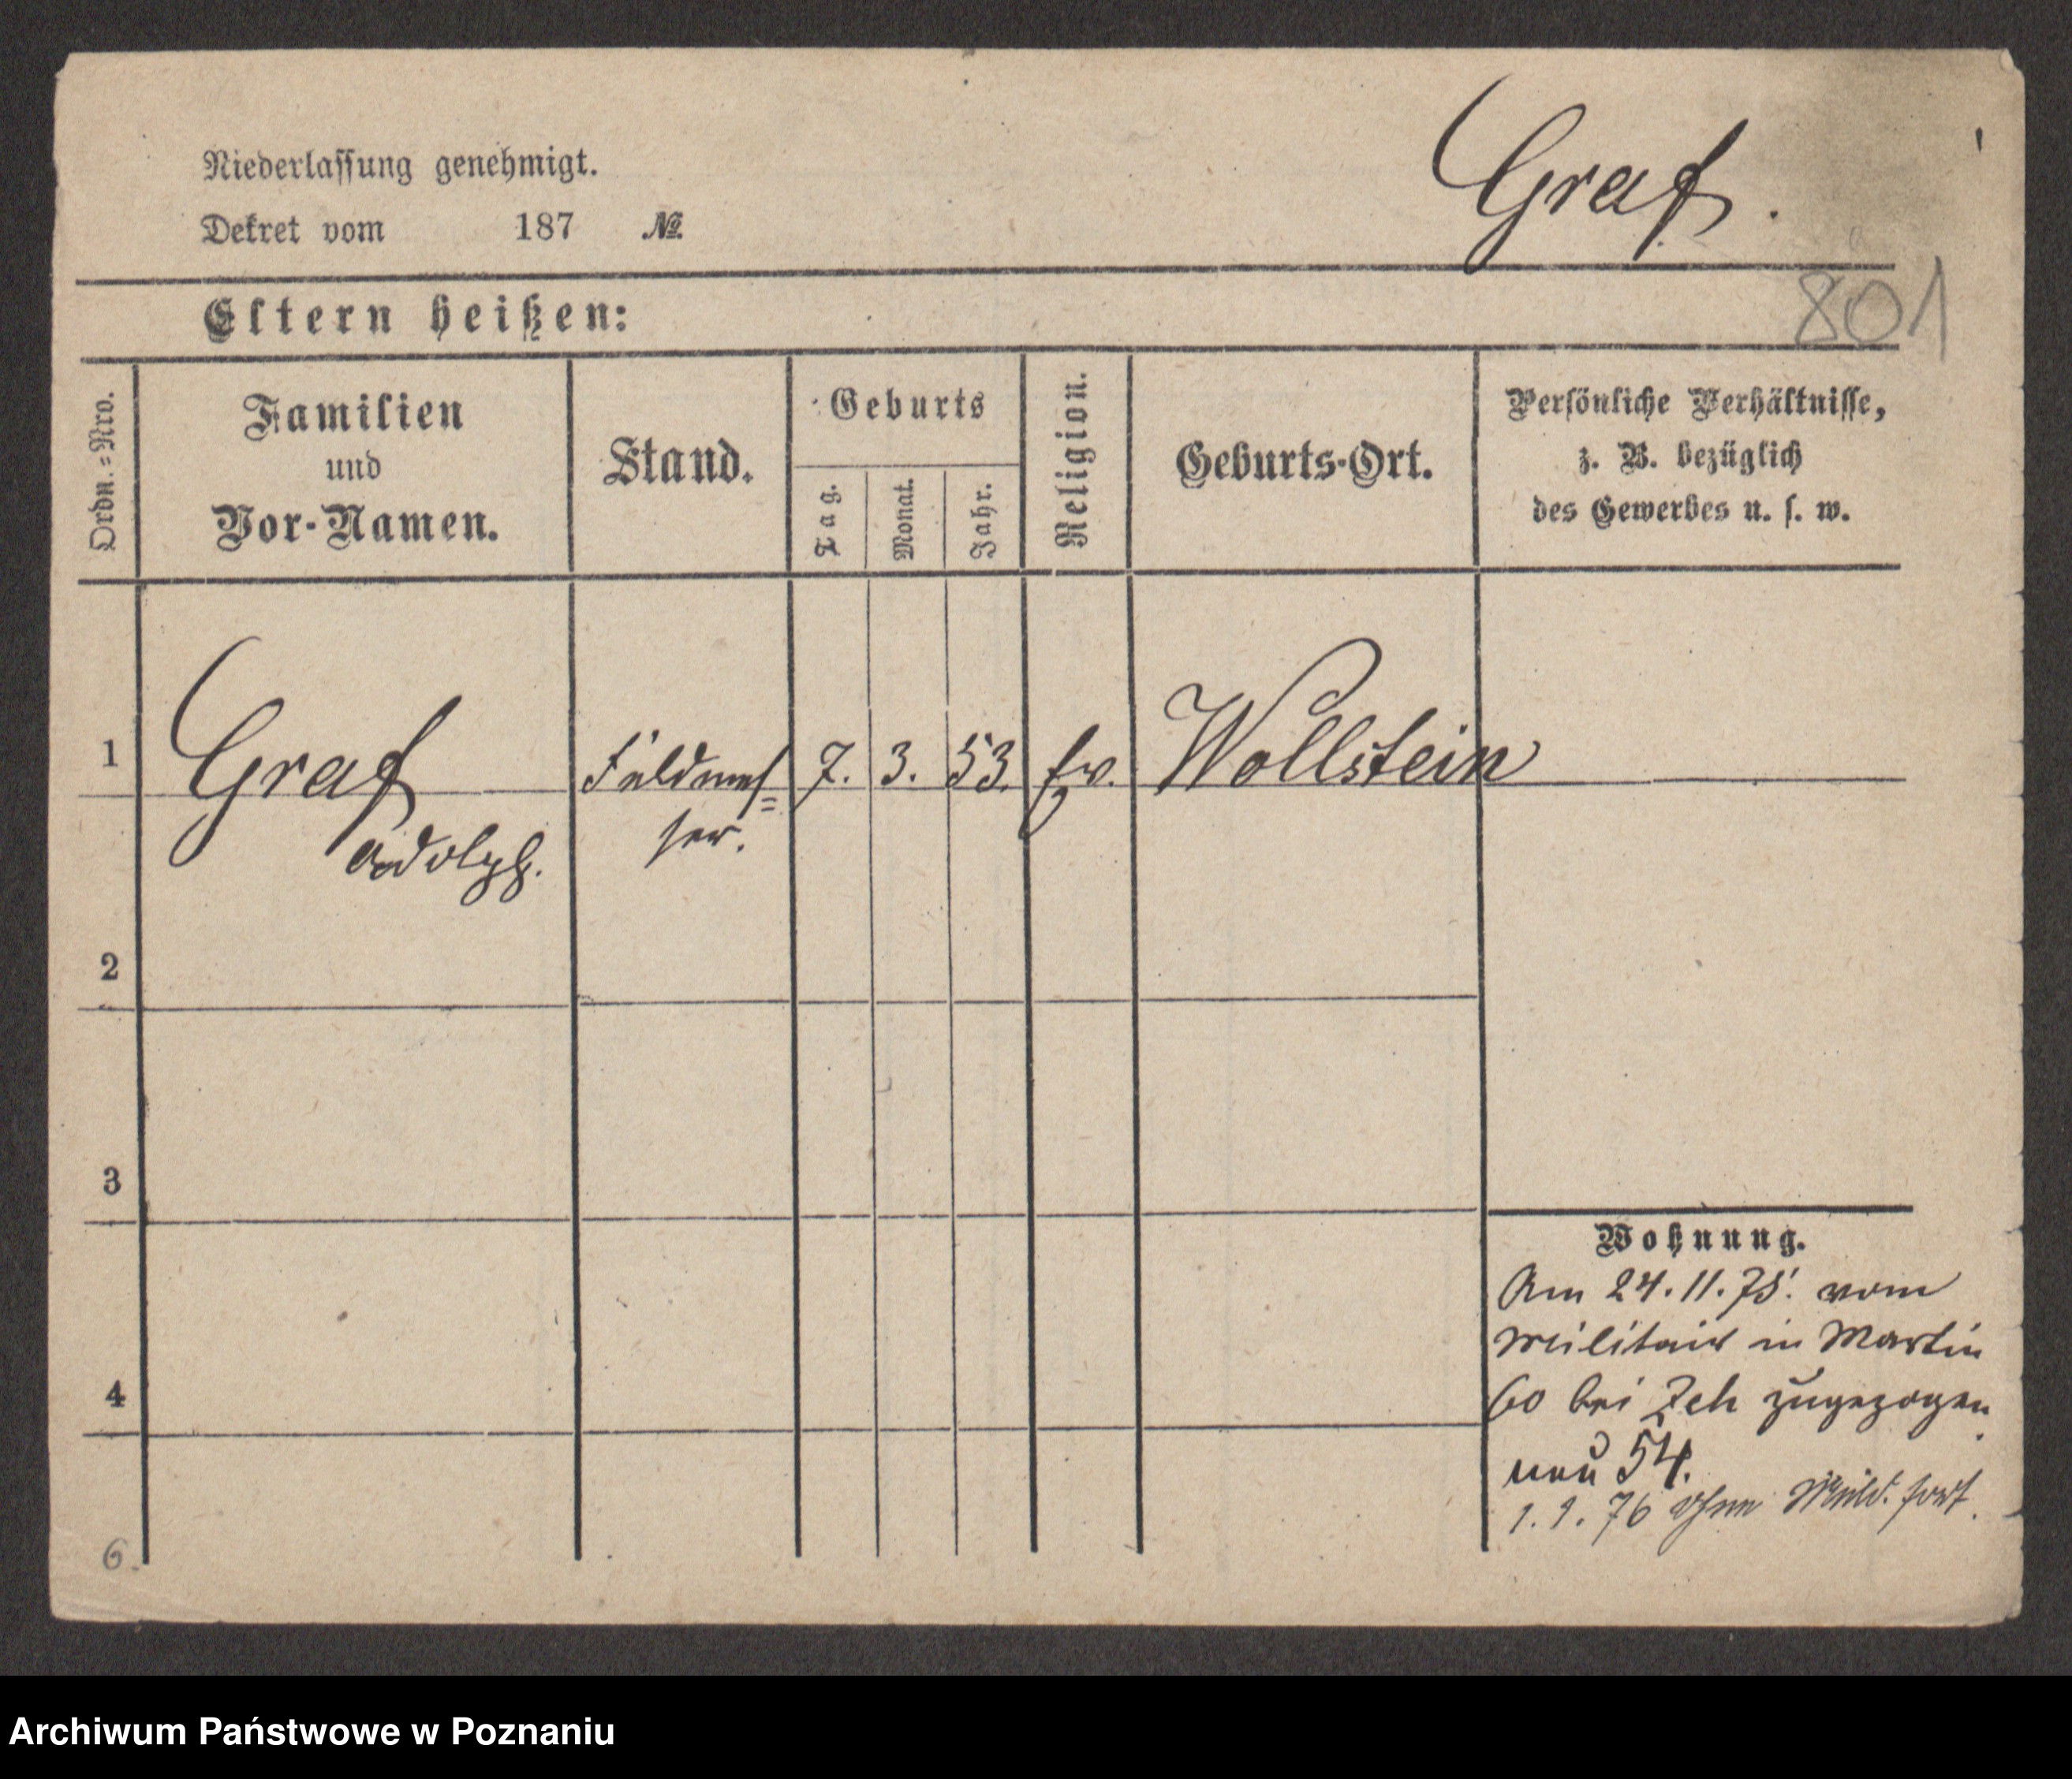 Graf.
Niederlassung genehmigt.
Dekret vom 187 №
801
Eltern heißen:
Ordn.=Nro.
Familien
und
Vor-Namen.
Stand.
Geburts
Tag.
Monat.
Jahr.
Religion.
Geburts-Ort.
Persönliche Verhältnisse,
z. B. bezüglich
des Gewerbes u. s. w.
1 Graf Feldmes= 7. 3. 53. Wollstein
Adolph. ser.
2
3
4
6.
Wohnung.
Am 24.11.75. vom
Militair in Martin
60 bei Zeh zugezogen.
neu 54.
1. 1. 76 ohne fort.
Archiwum Państwowe w Poznaniu